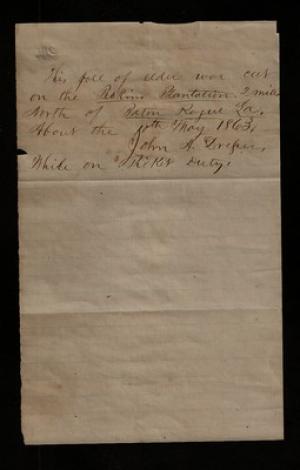 This pole of elder was cut
on the Robins Plantation 2 mile
North of Baton Rogue La.
About the 10th May 1863,
John A. Draper,
While on Picket Duty.